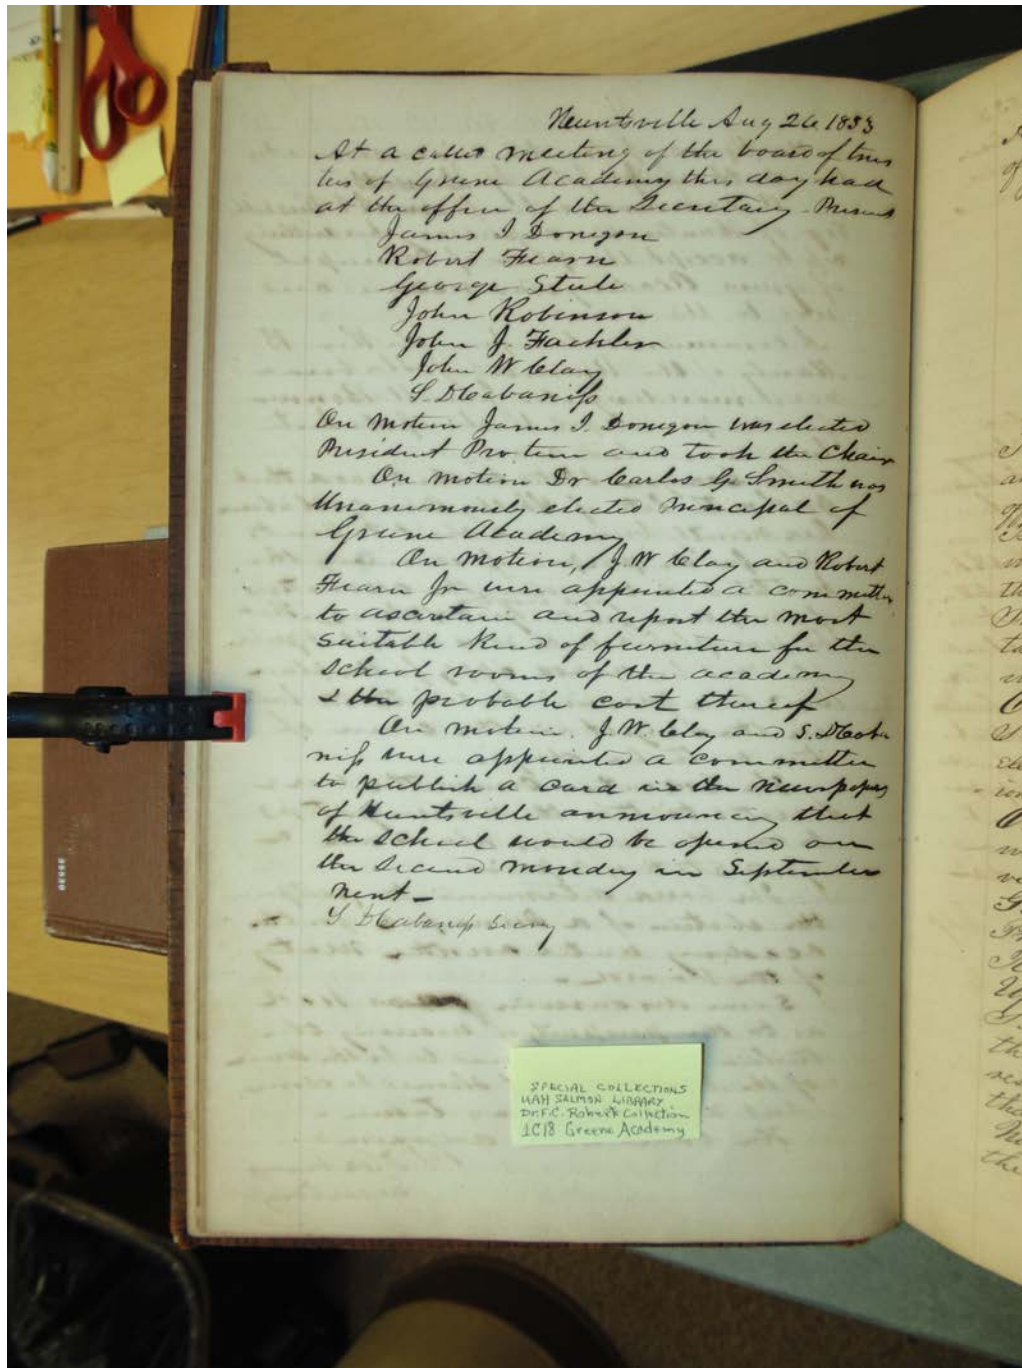 Huntsville Aug 26, 1853
At a called meeting of the board of trus
tees of Greene Academy this day had
at the office of the Secretary. Present
James I Donegan
Robert Fearn
George Steele
John Robinson
John J. Fackler
John W Clay
S. D Cabaniss
On motion James I. Donegan was elected
President Pro tem and took the Chair
On motion Dr Carlos G. Smith was
Unanimously elected Principal of
Greene Academy
On motion, J. W Clay and Robert
Fearn Jr were appointed a committee
to ascertain and report the most
suitable kind of furniture for the
school rooms of the academy
& the probable cost thereof
On motion. J. W. Clay and S. D Caba
niss were appointed a committee
to publish a card in the newspapers
of Huntsville announcing that
the school would be opened on
the second monday in September
next—
S D Cabaniss Secry
SPECIAL COLLECTIONS
UAH SALMON LIBRARY
Dr. F.C. Roberts Collection
1C18 Greene Academy